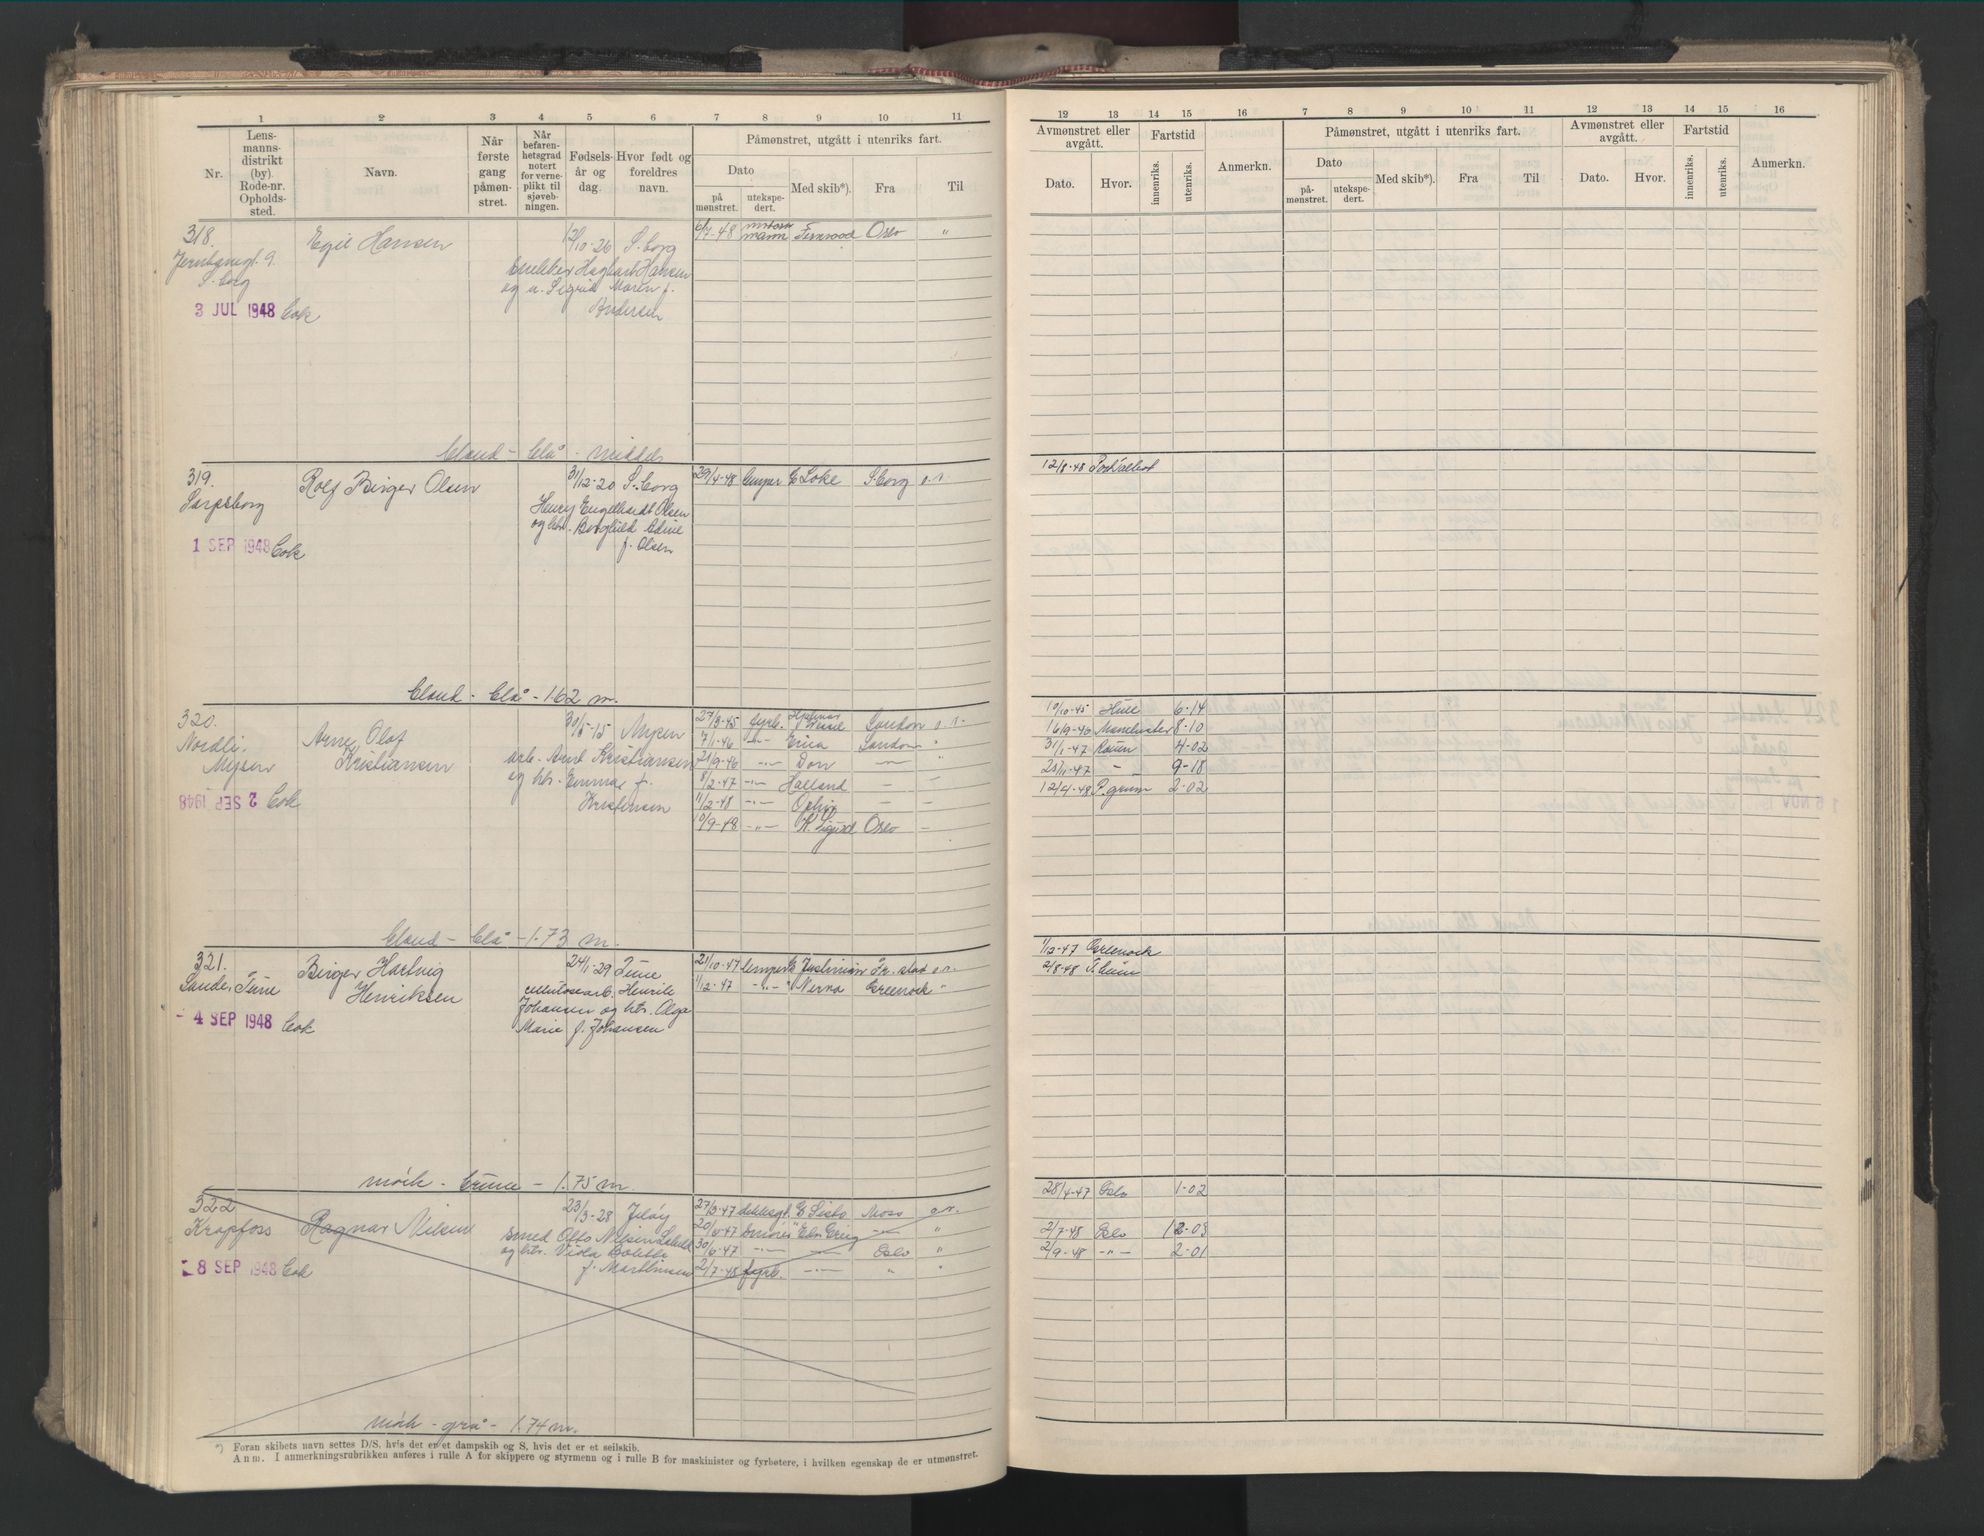 1 2 3 4 5 6 7 8 9 10 11
Nr.
Lens-
manns-
distrikt
(by).
Rode-nr.
Opholds-
sted.
Navn.
Når
første
gang
påmøn-
stret.
Når
befaren-
hetsgrad
notert
for verne-
plikt til
sjøveb-
ningen.
Fødsels-
år og
dag.
Hvor født og
foreldres
navn.
Påmønstret, utgått i utenriks fart.
Dato
på
mønstret.
utekspe-
dert.
Med skib*).
Fra
Til
318. Egil Hansen 12/10-26 S.borg 6/7-48 motor
mann Fernwood Oslo "
Jernbanegt. 9.
S.borg
snekker Hagbart Hansen
og u. Sigrid Maren f.
Andersen
3 JUL 1948
blond - blå - middels
319. Rolf Birger Olsen 31/12-20 S.borg 29/4-48 Loke S.borg o.s.
Sarpsborg
Henry Engelhardt Olsen
og htr. Borghild
f. Olsen
1 SEP 1948
blond - blå - 1.62 m.
320. Arne Olaf
Kristiansen 30/5-15 Mysen
Nordli.
Mysen
arb. Arnt Kristiansen
og htr. Emma f.
Kristensen
2 SEP 1948
27/3-45 fyrb. London
7/1-46 -"- Erica London "
21/9-46 -"- Don -"-
8/2-47 -"- Halland - -
11/2-48 -"- Ophir - -
10/9-48 -"- K. Sigurd Oslo -
blond - blå - 1.73 m.
321. Birger Hartvig
Henriksen 24/1-29 Tune
Sande, Tune
cellulosearb. Henrik
Johansen og htr. Olga
Marie f. Johansen
- 4 SEP 1948
21/10-47 Justinian Fr.stad o.s.
1/12-47 -"- Greenock "
mørk - brune - 1.75 m.
322 Ragnar Nilsen 23/3-28 Jeløy
Krapfoss
smed Otto Nilsen
og htr. Viola
f. Martinsen
8 SEP 1948
27/3-47 dekksgt. Moss o.s.
20/4-47 smører - "
30/6-47 -"- - Oslo "
2/7-48 fyrb. -"- " "
mørk - grå - 1.74 m.
*) Foran skibets navn settes D/S, hvis det er et dampskib og S, hvis det er et seilskib.
Anm. I anmerkningsrubrikken anføres i rulle A for skippere og styrmenn og i rulle B for maskinister og fyrbøtere, i hvilken egenskap de er utmønstret.
12 13 14 15 16 7 8 9 10 11 12 13 14 15 16
Avmønstret eller
avgått.
Dato.
Hvor.
Fartstid
innenriks.
utenriks.
Anmerkn.
Påmønstret, utgått i utenriks fart.
Dato
på-
mønstret.
utekspe-
dert.
Med skib*).
Fra
Til
Avmønstret eller
avgått.
Dato.
Hvor.
Fartstid
innenriks.
utenriks.
Anmerkn.
12/8-48 Port Talbot
10/10-45 Hull 6-14
16/9-46 Manchester 8-10
31/1-47 Rouen 4-02
25/11-47 - " - 9-18
12/4-48 P.grunn 2-02
1/12-47 Greenock
2/8-48
28/4-47 Oslo 1-02
2/7-48 Oslo 12-03
2/9-48 -"- 2-01